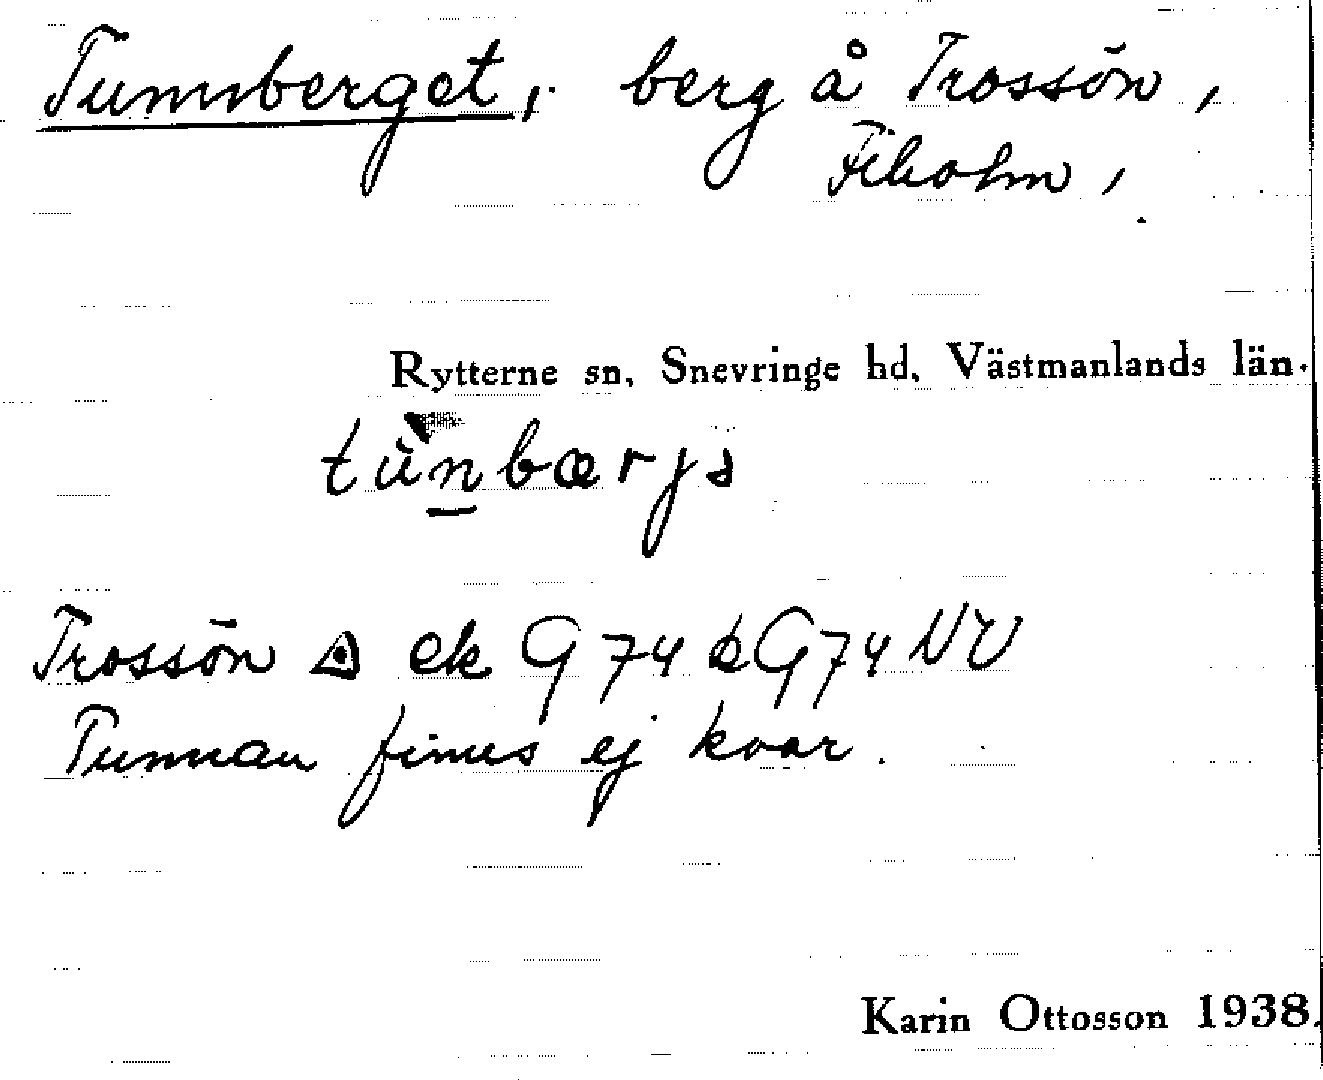 Tunnberget, berg å Trossön,
Fiholm,
Rytterne sn, Snevringe hd, Västmanlands län.
tùnbærjs
Trossön ek G 74 G 74 NV
Tunnan finns ej kvar.
Karin Ottosson 1938.